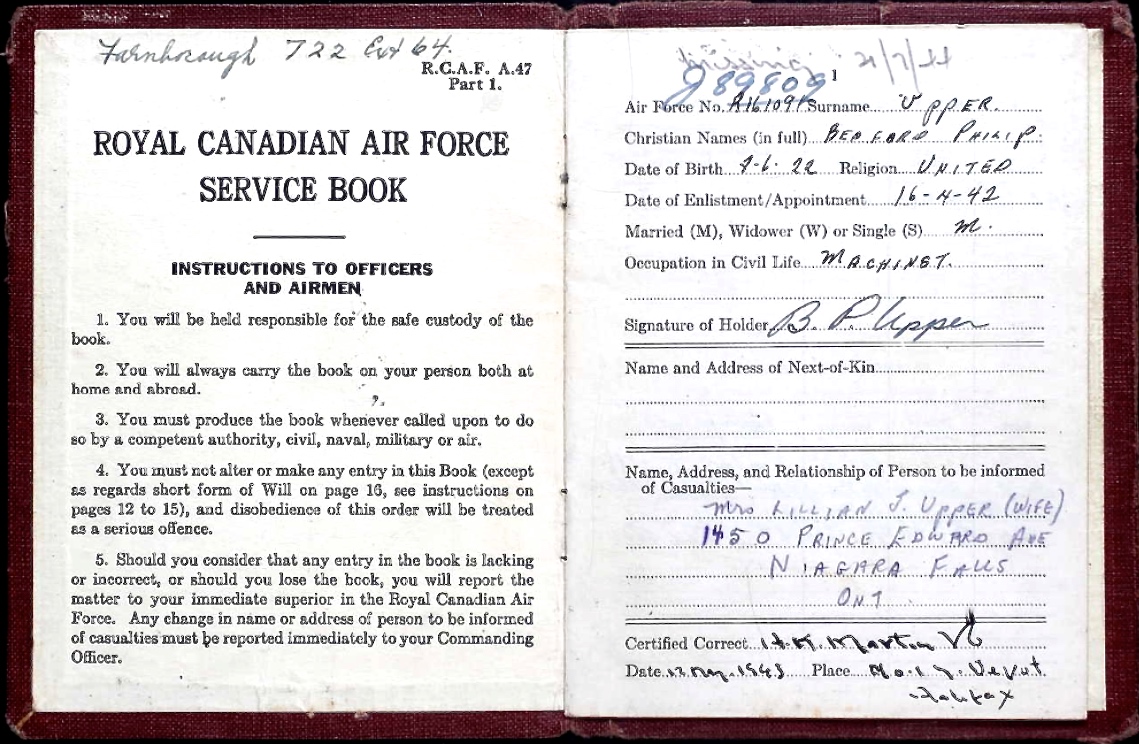 Farnborough 722 Ext 64.
R.C.A.F. A.47
Part 1.
ROYAL CANADIAN AIR FORCE
SERVICE BOOK
INSTRUCTIONS TO OFFICERS
AND AIRMEN
1. You will be held responsible for the safe custody of the
book.
2. You will always carry the book on your person both at
home and abroad.
3. You must produce the book whenever called upon to do
so by a competent authority, civil, naval, military or air.
4. You must not alter or make any entry in this Book (except
as regards short form of Will on page 16, see instructions on
pages 12 to 15), and disobedience of this order will be treated
as a serious offence.
5. Should you consider that any entry in the book is lacking
or incorrect, or should you lose the book, you will report the
matter to your immediate superior in the Royal Canadian Air
Force. Any change in name or address of person to be informed
of casualties must be reported immediately to your Commanding
Officer.
Missing 21/7/44
J89809
1
Air Force No. R161091 Surname UPPER.
Christian Names (in full) BEDFORD PHILIP.
Date of Birth 9-6-22 Religion UNITED
Date of Enlistment/Appointment 16-4-42
Married (M), Widower (W) or Single (S) M.
Occupation in Civil Life MACHINST.
Signature of Holder B. P. Upper
Name and Address of Next-of-Kin
Name, Address, and Relationship of Person to be informed
of Casualties—
Mrs LILLIAN J. UPPER (WIFE)
1450 PRINCE EDWARD AVE
NIAGARA FALLS
ONT
Certified Correct H.K. Martin
Date 12 May. 1943 Place No. 1 Y. Depot
Halifax